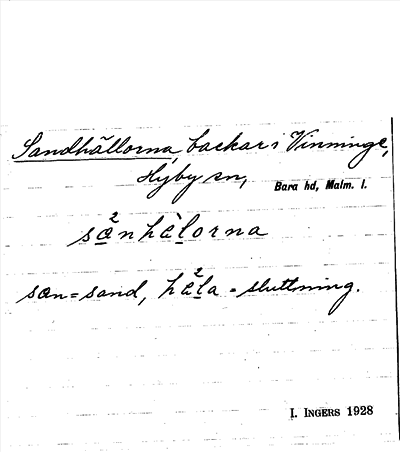 Sandhällorna, backar i Vinninge,
Hyby sn, Bara hd, Malm. l.
sa²nhàlorna
san = sand, hä²la = sluttning.
I. INGERS 1928